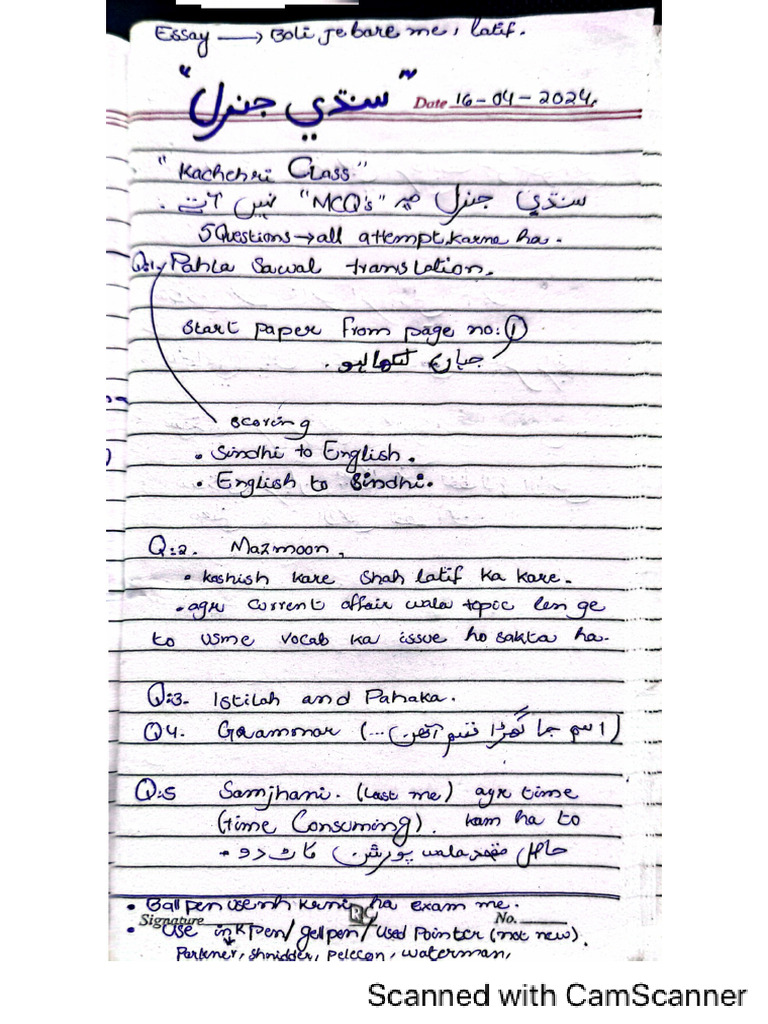 Essay → Boli je bare me, latif.
"سنڌي جنرل"
Date 16-04-2024.
"Kachehri Class"
سنڌي جنرل ۾ "MCQ's" نہیں آتے.
5 Questions → all attempt karna ha.
Q:1, Pahla Sawal translation.
Start paper from page no: 1
جہاں لکھا ہو.
scoring
• Sindhi to English.
• English to Sindhi.
Q:2. Mazmoon,
• koshish kare Shah latif ka kare.
• agr current affair wala topic len ge
to usme vocab ka issue ho sakta ha.
Q:3- Istilah and Pahaka.
Q4. Grammar (اسم جا گهڻا قسم آهن...)
Q:5 Samjhani. (last me) agr time
(time Consuming). kam ha to
حاصل مقصد wala پورشن کاٹ دو.
• Ball pen use nh karni ha exam me.
Signature RC No.
• Use ink pen/gell pen/used Pointer (not new).
Parkner, shnidder, pelecan, waterman,
Scanned with CamScanner